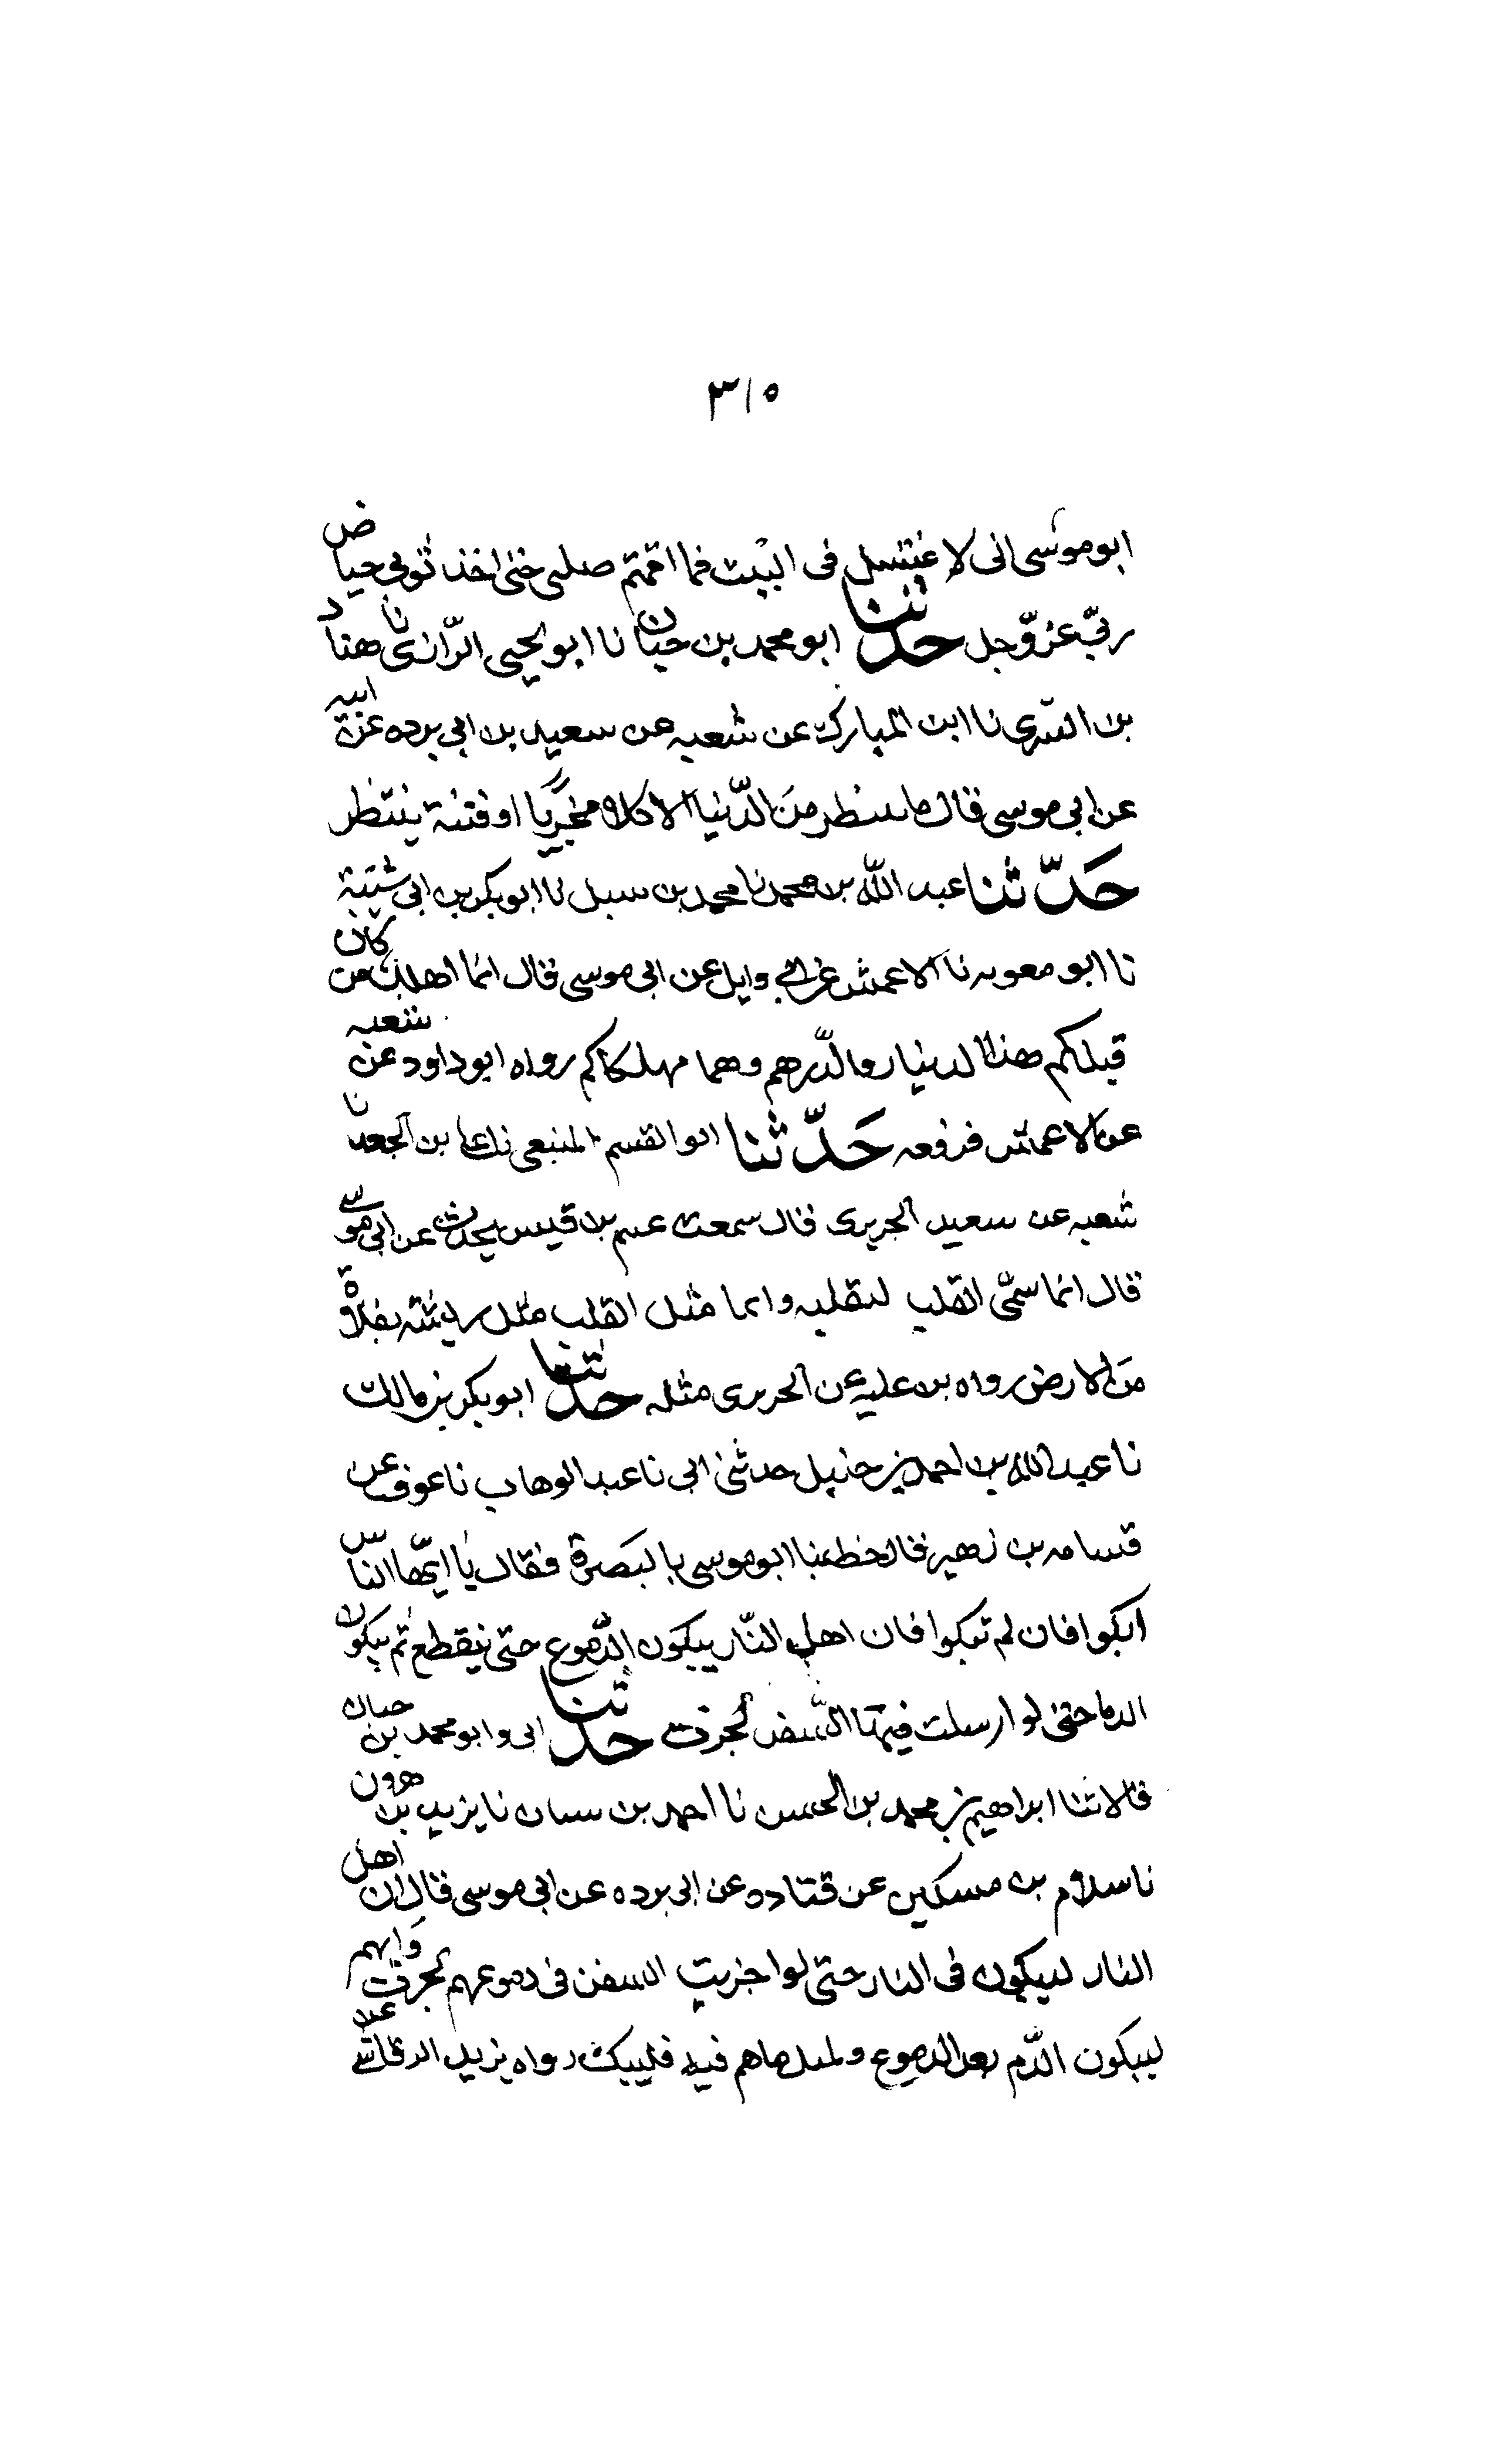 ٣١٥
ابو موسى انى لاغتسل فى البيت فما اقمتم صلبى حتى اخذ ثوبى حيا من
ربى عز وجل حدثنا ابو محمد بن حيان نا ابو يحيى الرازى نا هناد
بن السرى نا ابن المبارك عن شعبه عن سعيد بن ابى برده عن ابيه
عن ابى موسى قال ما ننتظر من الدنيا الا كلا محزنا او فتنة ينتظر
حدثنا عبد الله بن محمد نا محمد بن سبل نا ابو بكر بن ابى شيبة
نا ابو معويه نا الاعمش عن ابى وايل عن ابى موسى قال انما اهلك من كان
قبلكم هذا الدينار والدرهم وهما مهلكاكم رواه ابو داود عن شعبه
عن الاعمش فرفعه حدثنا ابو القسم المنيعى نا على بن الجعد نا
شعبه عن سعيد الجريرى قال سمعت غنيم بن قيس يحدث عن ابى موسى
قال انما سمى القلب لتقلبه وانما مثل القلب مثل ريشة بفلاة
من الارض رواه بن عليه عن الجريرى مثله حدثنا ابو بكر بن مالك
نا عبد الله بن احمد بن حنبل حدثنى ابى نا عبد الوهاب نا عوف عن
قسامه بن زهير قال خطبنا ابو موسى بالبصرة فقال يا ايها الناس
ابكوا فان لم تبكوا فان اهل النار يبكون الدموع حتى ينقطع ثم يبكون
الدما حتى لو ارسلت فيها السفن لجرت حدثنا ابى وابو محمد بن حيان
قالا ثنا ابراهيم بن محمد بن الحسن نا احمد بن سنان نا يزيد بن هرون
نا سلام بن مسكين عن قتاده عن ابى برده عن ابى موسى قال ان اهل
النار ليبكون فى النار حتى لو اجريت السفن فى دموعهم لجرت وانهم
ليبكون الدم بعد الدموع ولمثل ما هم فيه فليبك رواه يزيد الرقاشى عن